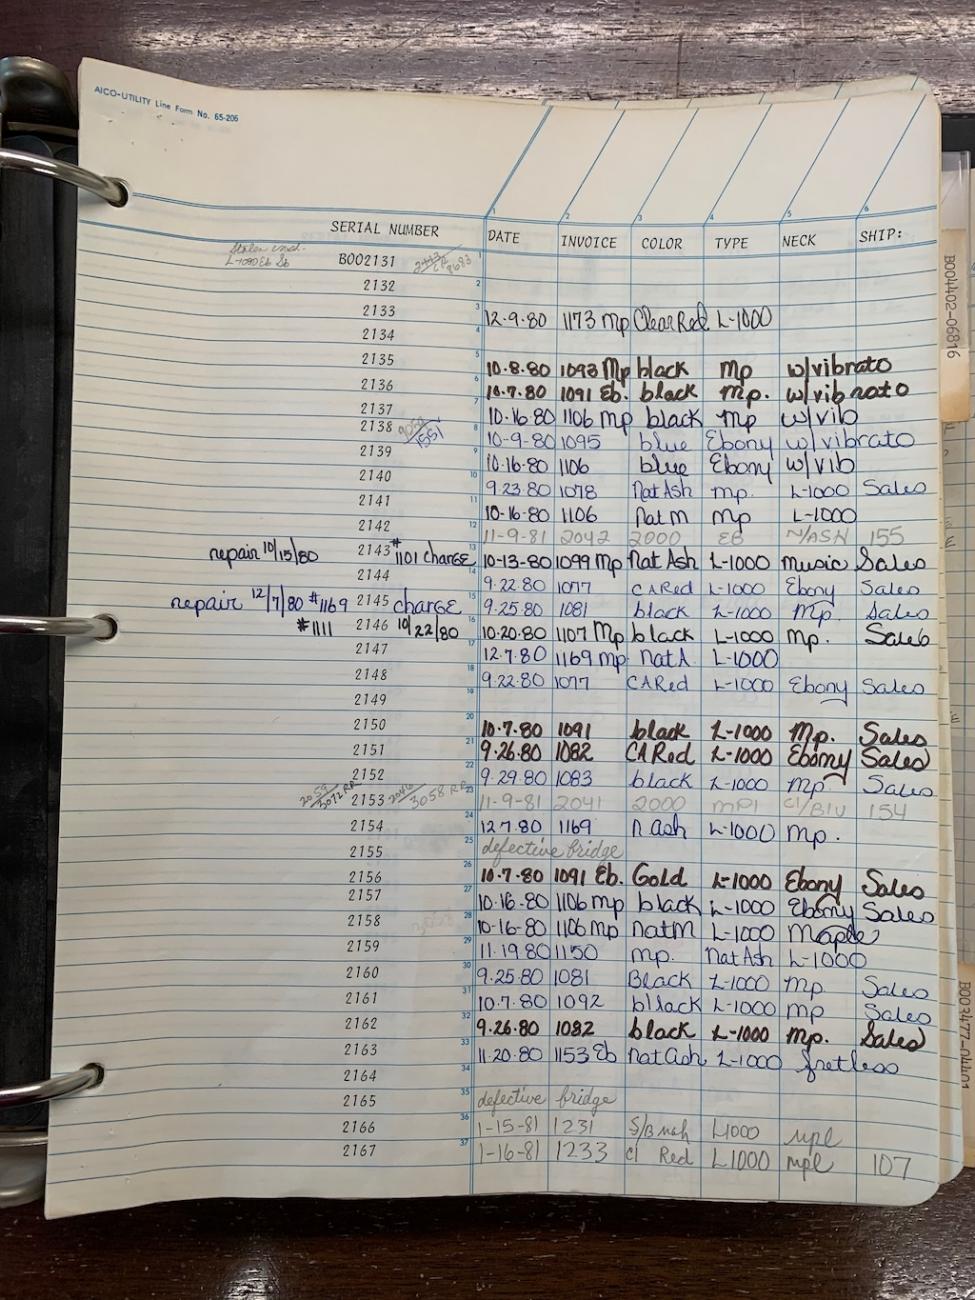 AICO-UTILITY Line Form No. 65-206
1 2 3 4 5 6
SERIAL NUMBER DATE INVOICE COLOR TYPE NECK SHIP:
Stolen
B002131 1
2132 2
2133 3 12.9.80 1173 mp Clear Red L-1000
2134 4
2135 5 10.8.80 1093 Mp black Mp w/vibrato
2136 6 10.7.80 1091 Eb. black Mp. w/vibrato
2137 7 10.16.80 1106 mp black Mp w/vib
2138 1551 8 10-9-80 1095 blue Ebony w/vibrato
2139 9 10.16.80 1106 blue Ebony w/vib
2140 10 9.23.80 1078 Nat Ash mp. L-1000 Sales
2141 11 10-16-80 1106 Nat m mp L-1000
2142 12 11-9-81 2042 2000 EB N/ASH 155
repair 10/15/80 2143 #1101 charge 13 10-13-80 1099 Mp Nat Ash L-1000 music Sales
2144 14 9.22.80 1077 CARed L-1000 Ebony Sales
repair 12/7/80 #1169 2145 charge 15 9.25.80 1081 black L-1000 Mp. Sales
#1111 2146 10/22/80 16 10.20.80 1107 Mp black L-1000 mp. Sales
2147 17 12.7.80 1169 mp Nat A L-1000
2148 18 9.22.80 1077 CARed L-1000 Ebony Sales
2149 19
2150 20 10.7.80 1091 black L-1000 Mp. Sales
2151 21 9.26.80 1082 CA Red L-1000 Ebony Sales
2152 22 9.29.80 1083 black L-1000 mp Sales
2153 3058 RP 23 11-9-81 2041 2000 MPl Cl/Blu 154
2154 24 12.7.80 1169 n ash L-1000 mp.
2155 25 defective bridge
2156 26 10.7.80 1091 Eb. Gold L-1000 Ebony Sales
2157 27 10.16.80 1106 mp black L-1000 Ebony Sales
2158 28 10-16-80 1106 Mp nat m L-1000 Maple
2159 29 11.19.80 1150 mp. Nat Ash L-1000
2160 30 9.25.80 1081 Black L-1000 mp Sales
2161 31 10.7.80 1092 bllack L-1000 mp Sales
2162 32 9.26.80 1082 black L-1000 mp. Sales
2163 33 11.20.80 1153 Eb Nat ash L-1000 fretless
2164 34
2165 35 defective bridge
2166 36 1-15-81 1231 L1000 mpl
2167 37 1-16-81 1233 cl Red L1000 mpl 107
B004402-06816